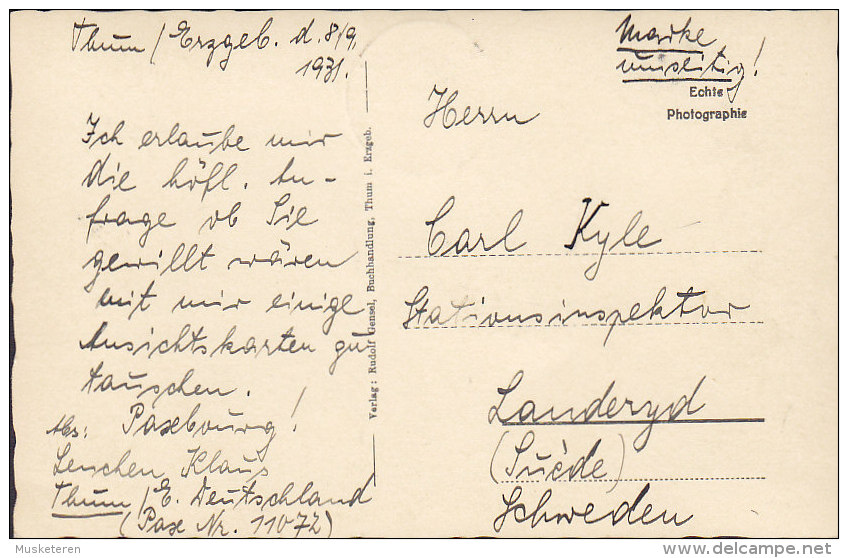 Thum / Erzgeb. d. 8/9.
1931.
Ich erlaube mir
die höfl. An-
frage ob Sie
gewillt wären
mit mir einige
Ansichtskarten zu
tauschen.
Abs: Paxebourg!
Lenchen Klaus
Thum / E. Deutschland
(Pax Nr. 11072)
Verlag: Rudolf Gensel, Buchhandlung, Thum i. Erzgeb.
Marke
umseitig!
Echte
Photographie
Herrn
Carl Kyle
Stationsinspektor
Landeryd
(Suède)
Schweden
© Musketeren
delcampe.net